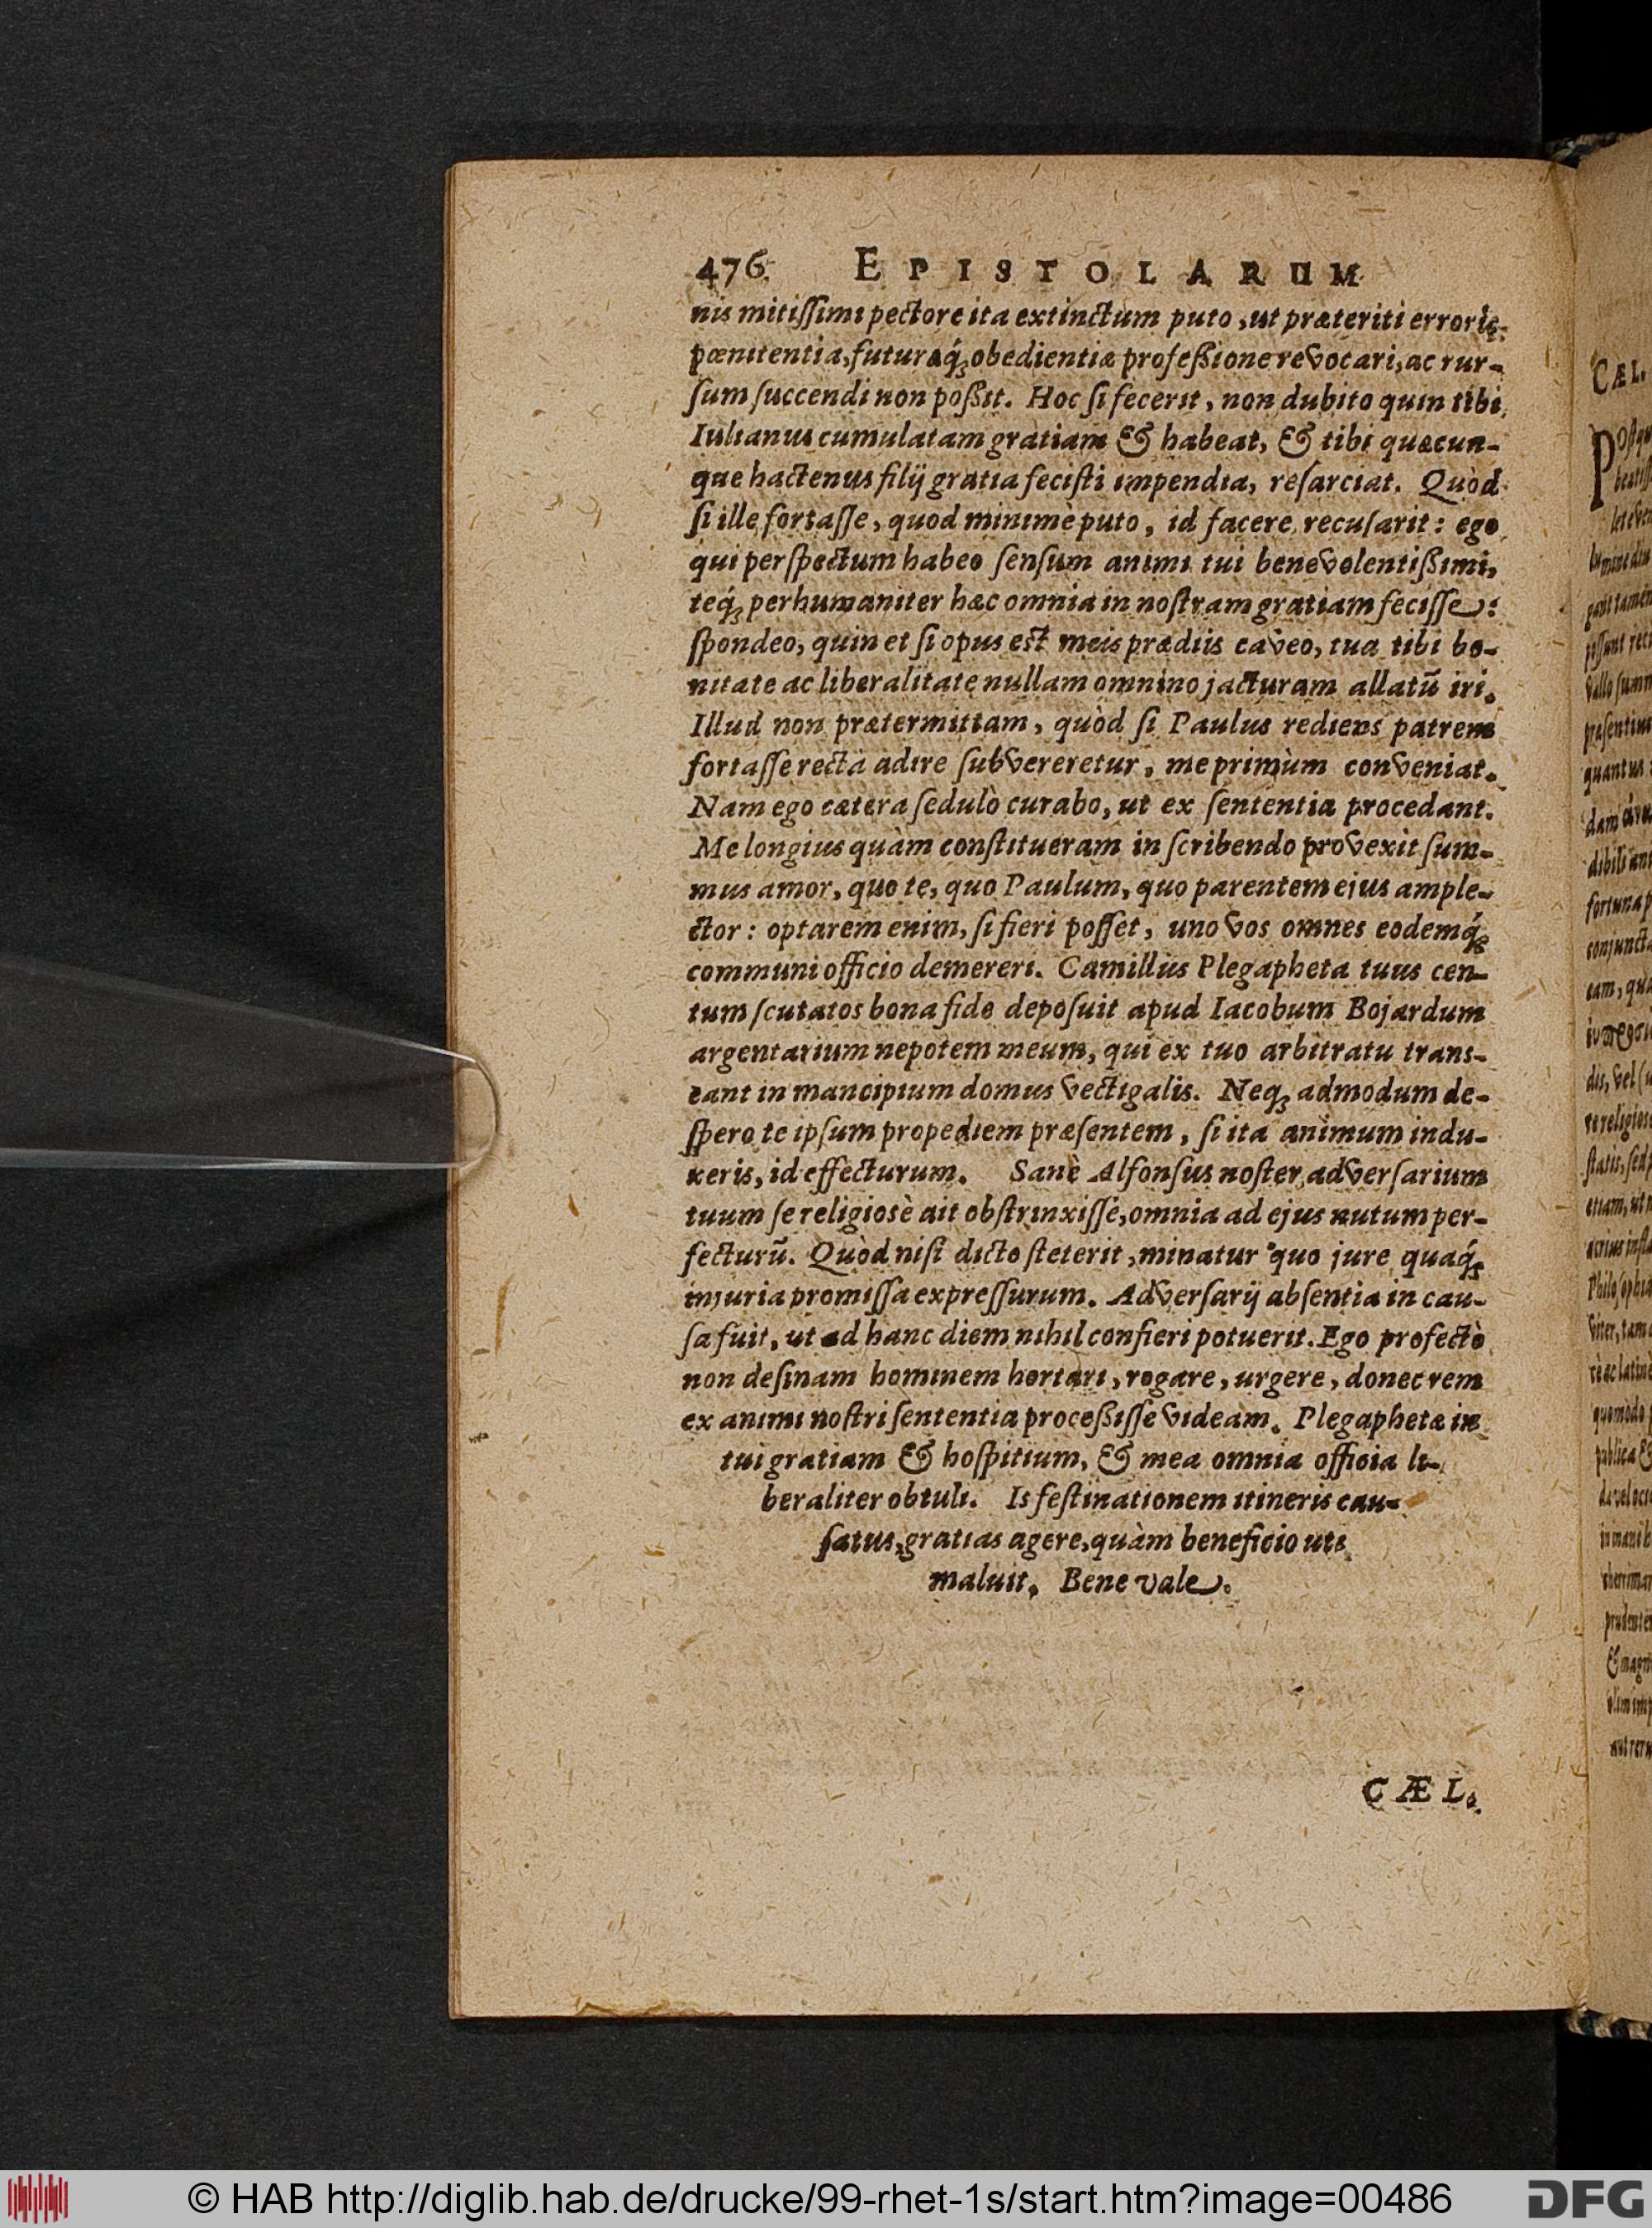 476 EPISTOLARUM
nis mitiſſimi pectore ita extinctum puto, ut præteriti erroris
pœnitentia, futuraq́; obedientiæ profeßione revocari, ac rur-
ſum ſuccendi non poßit. Hoc ſi fecerit, non dubito quin tibi
Iulianus cumulatam gratiam & habeat, & tibi quæcun-
que hactenus filij gratia feciſti impendia, reſarciat. Quòd
ſi ille fortaſſe, quod minimè puto, id facere recuſarit: ego
qui perſpectum habeo ſenſum animi tui benevolentißimi,
teq́; perhumaniter hæc omnia in noſtram gratiam feciſſe:
ſpondeo, quin et ſi opus est meis prædiis caveo, tua tibi bo-
nitate ac liberalitate nullam omnino jacturam allatū iri.
Illud non prætermittam, quòd ſi Paulus rediens patrem
fortaſſe rectà adire ſubvereretur, me primùm conveniat.
Nam ego cætera ſedulò curabo, ut ex ſententia procedant.
Me longius quàm conſtitueram in ſcribendo provexit ſum-
mus amor, quo te, quo Paulum, quo parentem eius ample-
ctor: optarem enim, ſi fieri poſſet, uno vos omnes eodemq́;
communi officio demereri. Camillus Plegapheta tuus cen-
tum ſcutatos bona fide depoſuit apud Iacobum Bojardum
argentarium nepotem meum, qui ex tuo arbitratu trans-
eant in mancipium domus vectigalis. Neq; admodum de-
ſpero te ipſum propediem præſentem, ſi ita animum indu-
xeris, id effecturum. Sanè Alfonſus noſter adverſarium
tuum ſe religiosè ait obſtrinxiſſe, omnia ad ejus nutum per-
fecturū. Quòd niſi dicto ſteterit, minatur quo jure quaq́;
injuria promiſſa expreſſurum. Adverſarij abſentia in cau-
ſa fuit, ut ad hanc diem nihil confieri potuerit. Ego profectò
non deſinam hominem hortari, rogare, urgere, donec rem
ex animi noſtri ſententia proceßiſſe videam. Plegaphetæ in
tui gratiam & hoſpitium, & mea omnia officia li-
beraliter obtuli. Is feſtinationem itineris cau-
ſatus, gratias agere, quàm beneficio uti
maluit. Bene vale.
CÆL.
CÆL.
© HAB http://diglib.hab.de/drucke/99-rhet-1s/start.htm?image=00486
DFG